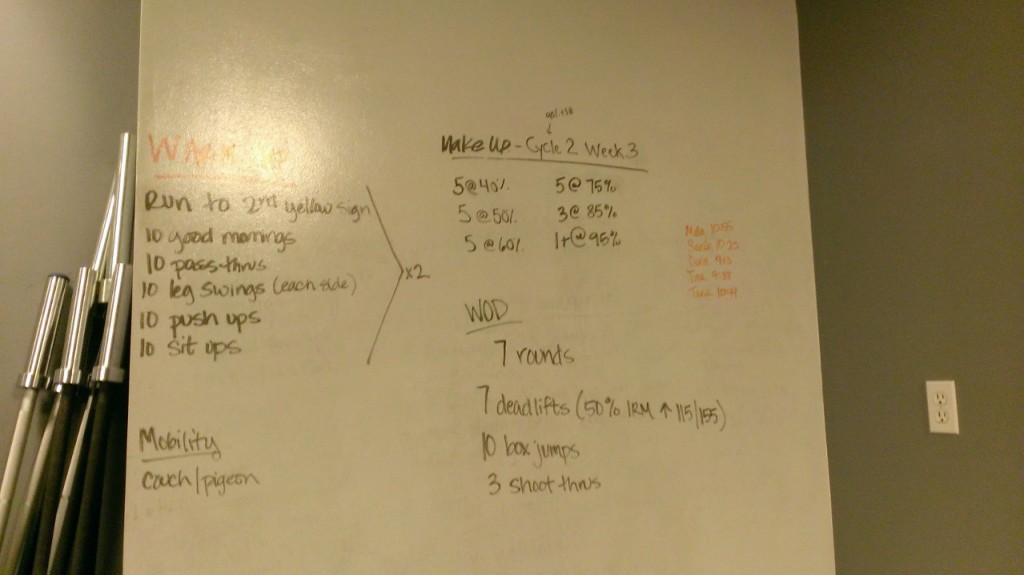 WARM UP
Run to 2nd yellow sign
10 good mornings
10 pass-thrus
10 leg swings (each side)
10 push ups
10 sit ups
x2
Mobility
couch/pigeon
Make Up - Cycle 2 Week 3
5@40% 5@75%
5@50% 3@85%
5@60% 1+@95%
WOD
7 rounds
7 deadlifts (50% 1RM ↑ 115/155)
10 box jumps
3 shoot thrus
10:55